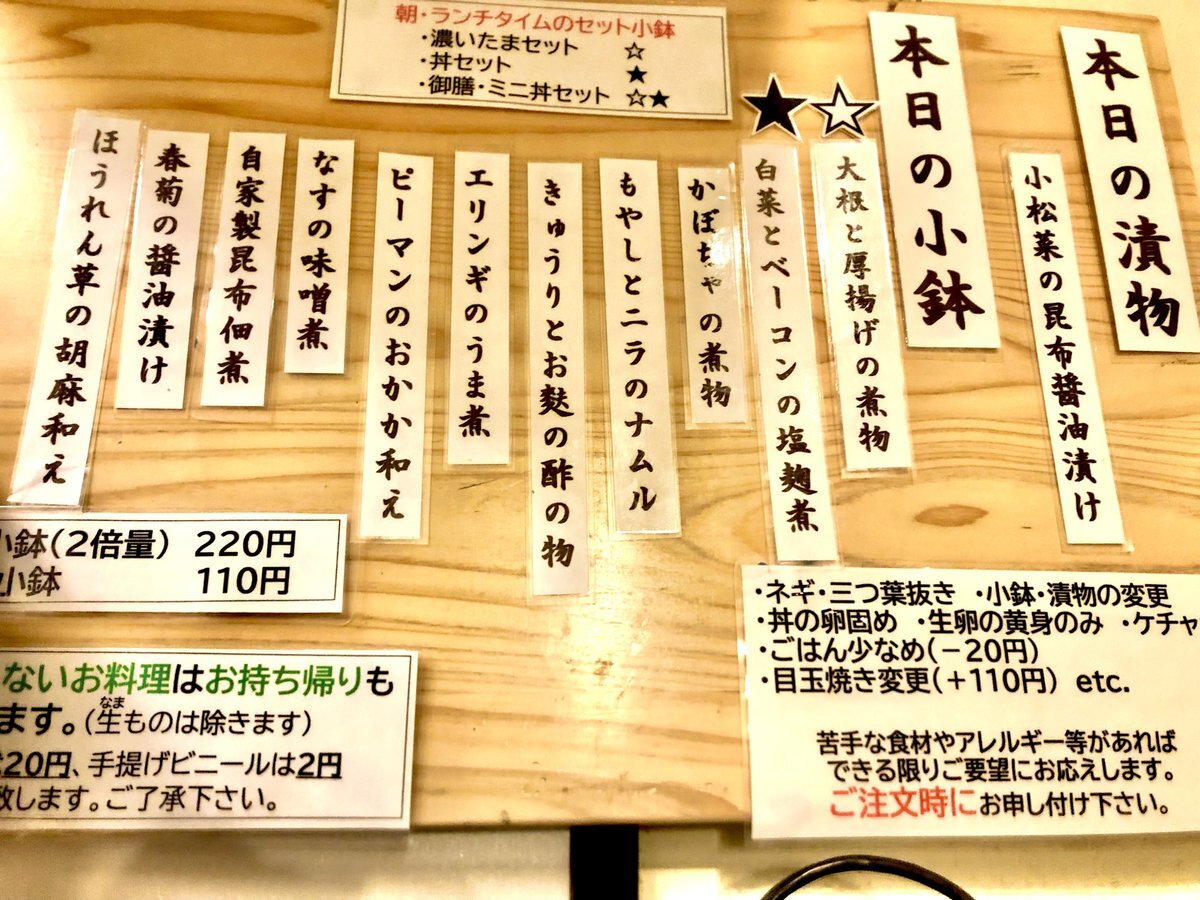 朝・ランチタイムのセット小鉢
・濃いたまセット ☆
・丼セット ★
・御膳・ミニ丼セット ☆★
本日の漬物
小松菜の昆布醤油漬け
本日の小鉢
☆
大根と厚揚げの煮物
★
白菜とベーコンの塩麹煮
かぼちゃの煮物
もやしとニラのナムル
きゅうりとお麩の酢の物
エリンギのうま煮
ピーマンのおかか和え
なすの味噌煮
自家製昆布佃煮
春菊の醤油漬け
ほうれん草の胡麻和え
小鉢(2倍量) 220円
小鉢 110円
ないお料理はお持ち帰りも
ます。(生ものは除きます)
なま
20円、手提げビニールは2円
致します。ご了承下さい。
・ネギ・三つ葉抜き ・小鉢・漬物の変更
・丼の卵固め ・生卵の黄身のみ ・ケチャ
・ごはん少なめ(-20円)
・目玉焼き変更(+110円) etc.
苦手な食材やアレルギー等があれば
できる限りご要望にお応えします。
ご注文時にお申し付け下さい。